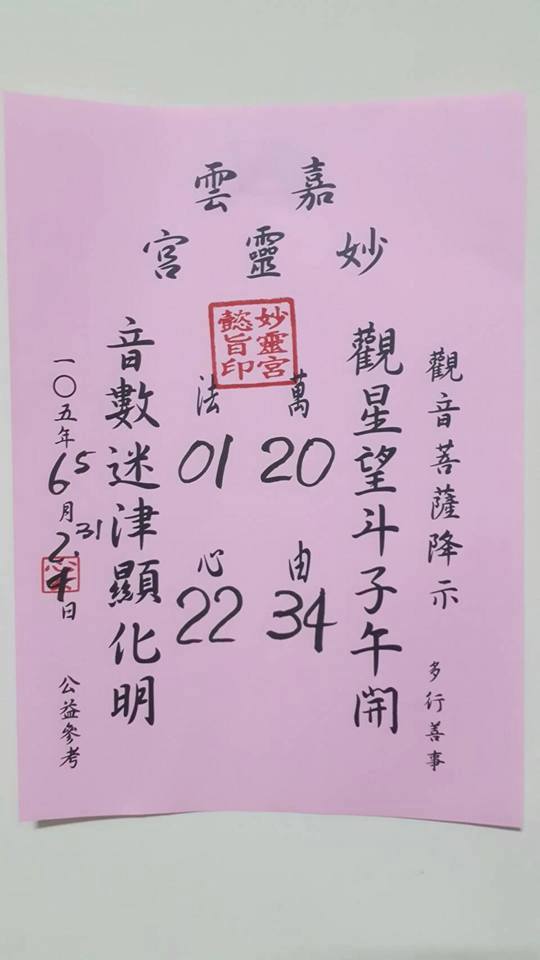 嘉雲
妙靈宮
觀音菩薩降示 多行善事
觀星望斗子午開
妙靈宮
懿旨印
萬法由心
20 01
34 22
音數迷津顯化明
一〇五年6 5月31日 公益參考